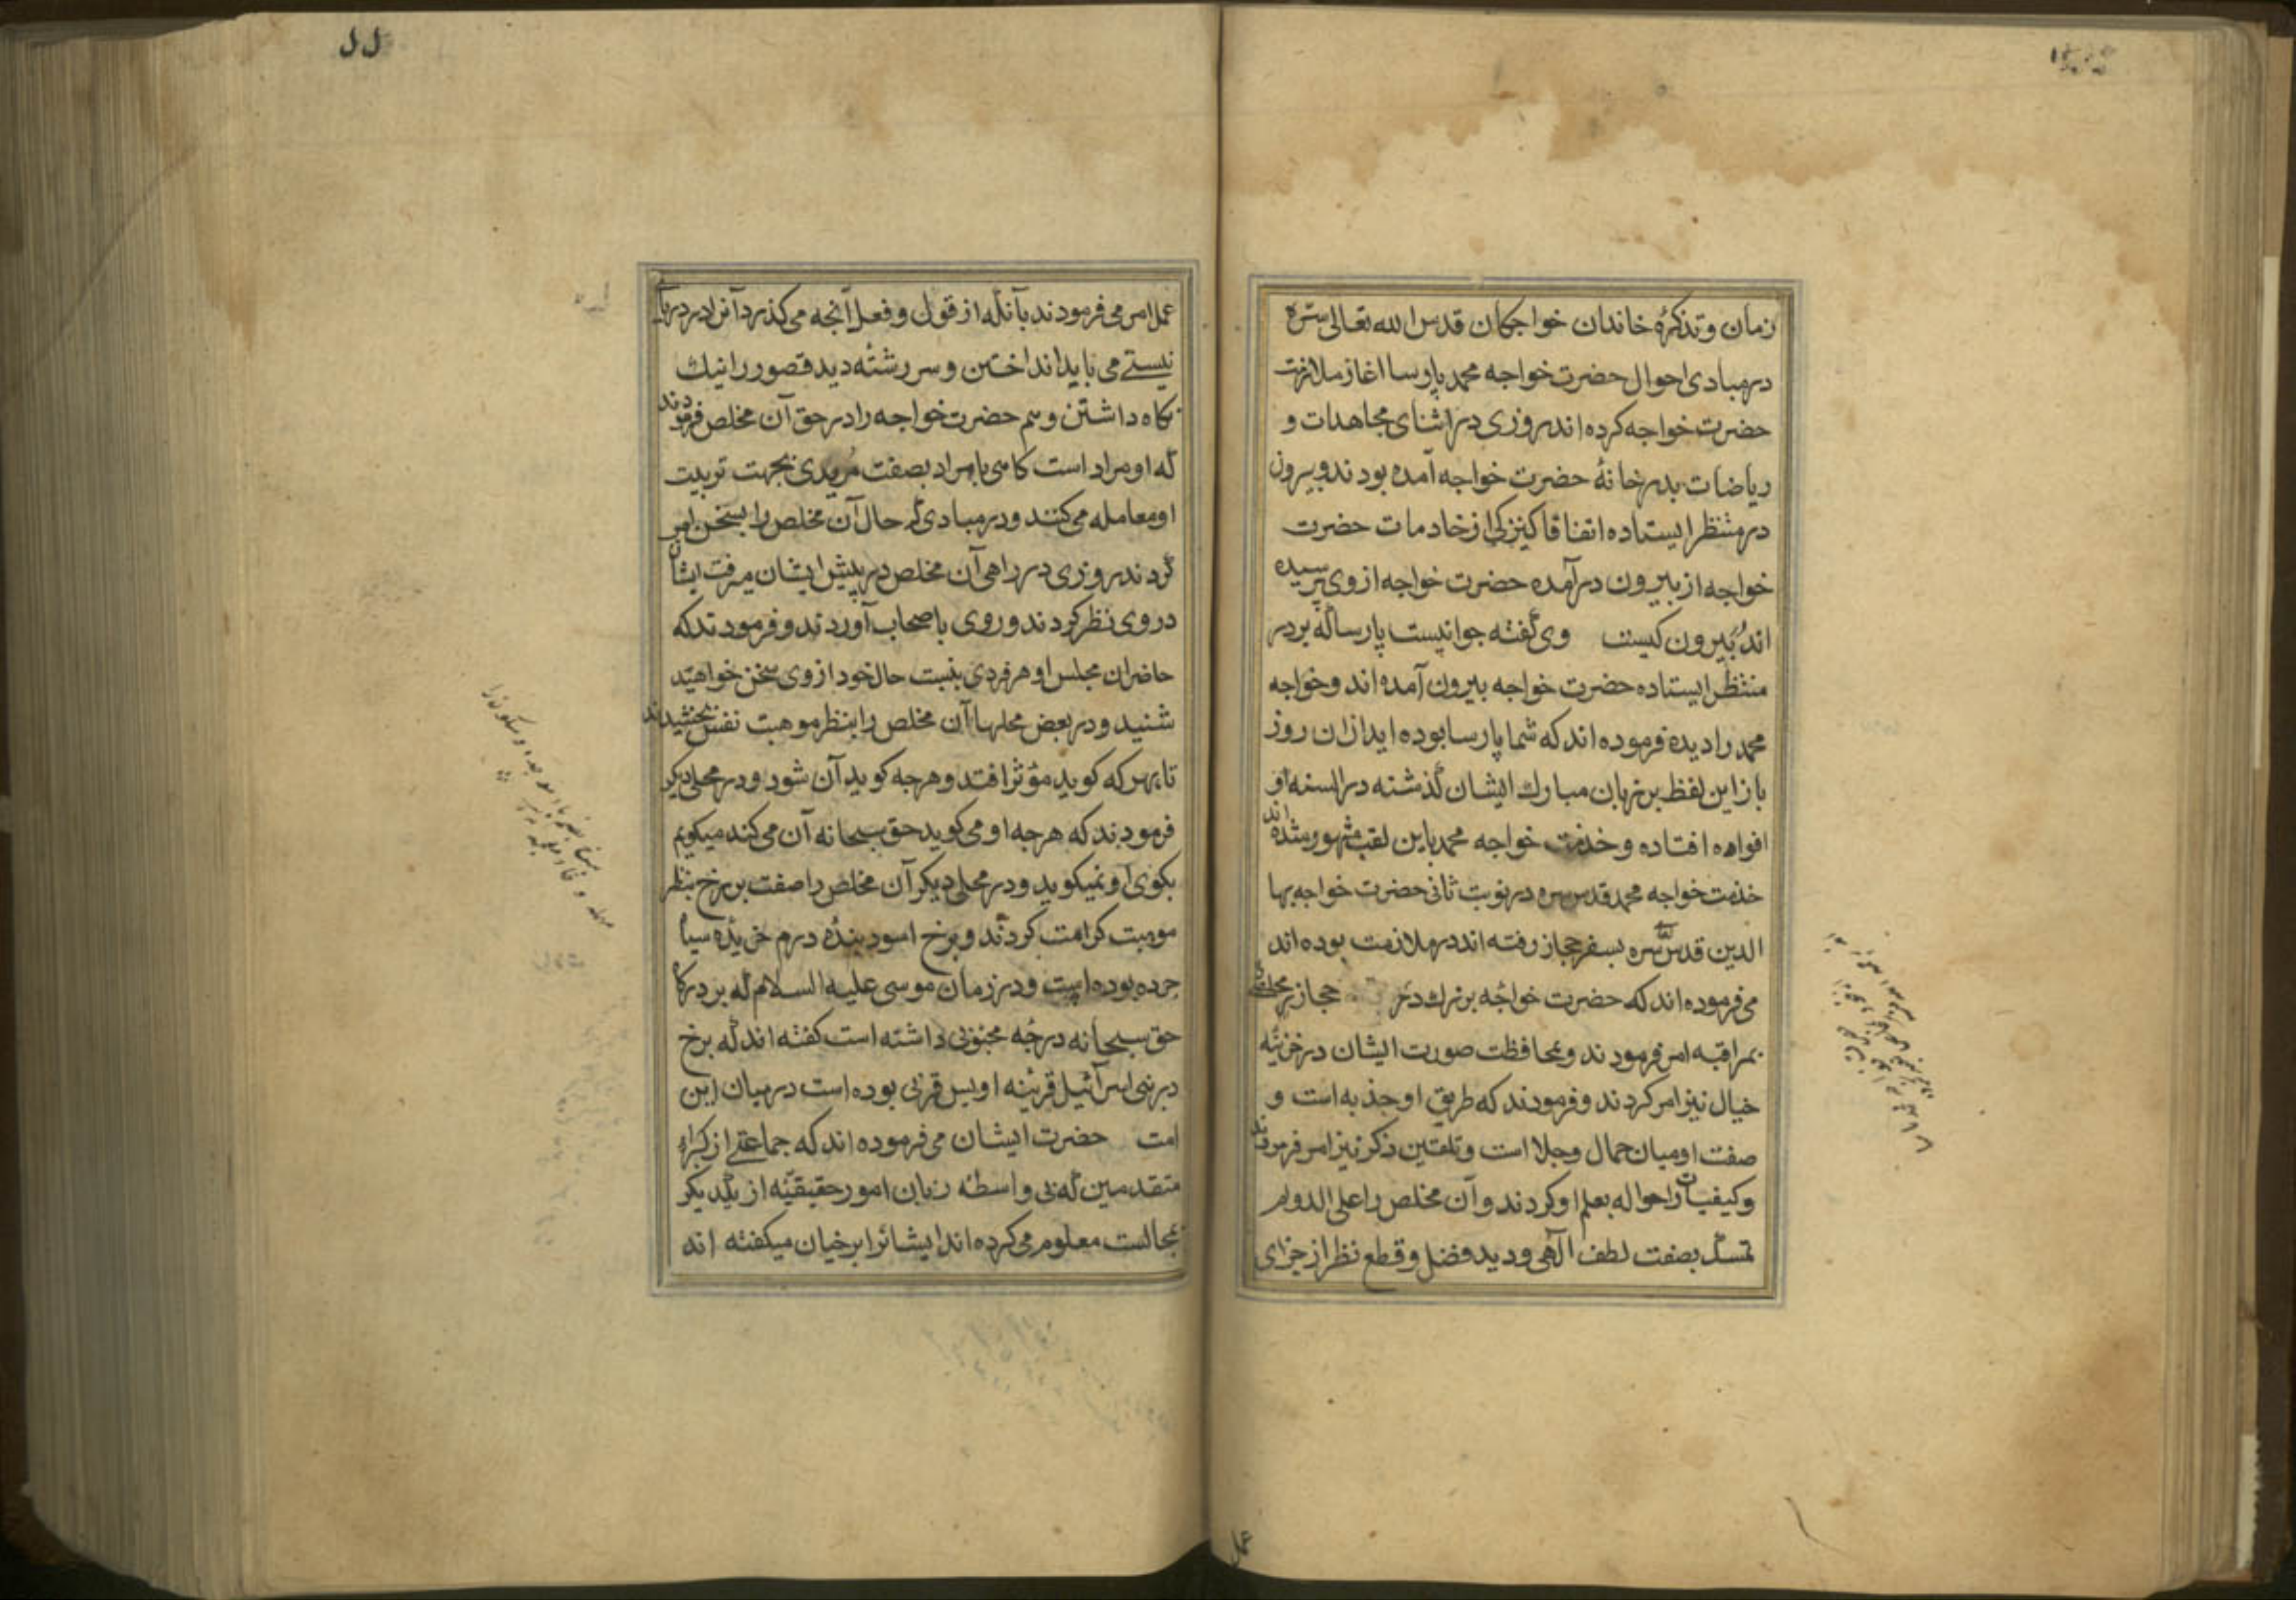 زمان و تذکرهٔ خاندان خواجکان قدس الله تعالی سره
در مبادی احوال حضرت خواجه محمد پارسا اغاز ملازمت
حضرت خواجه کرده اند روزی در اثنای مجاهدات و
ریاضات بدر خانهٔ حضرت خواجه آمده بودند و بیرون
در منتظر ایستاده اتفاقا کنیزکی از خادمات حضرت
خواجه از بیرون در آمده حضرت خواجه از وی پرسیده
اند بیرون کیست وی گفته جوانیست پارسا که بر در
منتظر ایستاده حضرت خواجه بیرون آمده اند و خواجه
محمد را دیده فرموده اند که شما پارسا بوده اید ازان روز
باز این لفظ بر زبان مبارک ایشان گذشته در السنه و
افواه افتاده و خدمت خواجه محمد باین لقب مشهور شده اند
خدمت خواجه محمد قدس سره در نوبت ثانی حضرت خواجه بها
الدین قدس سره بسفر حجاز رفته اند در ملازمت بوده اند
می فرموده اند که حضرت خواجه بزرک در حجاز
بمراقبه امر فرمودند و محافظت صورت ایشان در خزینه
خیال نیز امر کردند و فرمودند که طریق او جذبه است و
صفت او میان جمال و جلا است و تلقین ذکر نیز امر فرمودند
و کیفیات را حواله بعلم او کردند و آن مخلص را علی الدوام
تمسک بصفت لطف الهی و دید فضل و قطع نظر از جزای
عمل
لل
عمل امر می فرمودند بآنکه از قول و فعل آنجه می کذرد آنرا در دریا
نیستے می باید انداختن و سر رشته دید قصور را نیک
نکاه داشتن و هم حضرت خواجه را در حق آن مخلص فرمودند
که او مراد است کاهی با مراد بصفت مریدی بجهت تربیت
او معامله می کنند و در مبادی حال آن مخلص را بسخن امر
کردند روزی در راهی آن مخلص در پیش ایشان میرفت ایشان
در وی نظر کردند و روی با صحاب آوردند و فرمودند که
حاضران مجلس او هر فردی بنسبت حال خود از وی سخن خواهند
شنید و در بعض محلها آن مخلص را بنظر موهبت نفس بخشیدند
تا بهر که کوید مؤثر افتد و هرجه کوید آن شود و در محلی دیکر
فرمودند که هرجه او می کوید حق سبحانه آن می کند میکویم
بکوی او نمیکوید و در محلی دیکر آن مخلص را صفت برخ بنظر
موهبت کرامت کردند و برخ اسود بنده درم خریده سیاه
جرده بوده است و در زمان موسی علیه السلام که بر درکاه
حق سبحانه درجه محبوبی داشته است کفته اند که برخ
در بنی اسرآئیل قرینه اویس قرنی بوده است در میان این
امت حضرت ایشان می فرموده اند که جماعتے از کبراء
متقدمین که بی واسطه زبان امور حقیقیه از یکدیکر
بمجالست معلوم می کرده اند ایشانرا برخیان میکفته اند